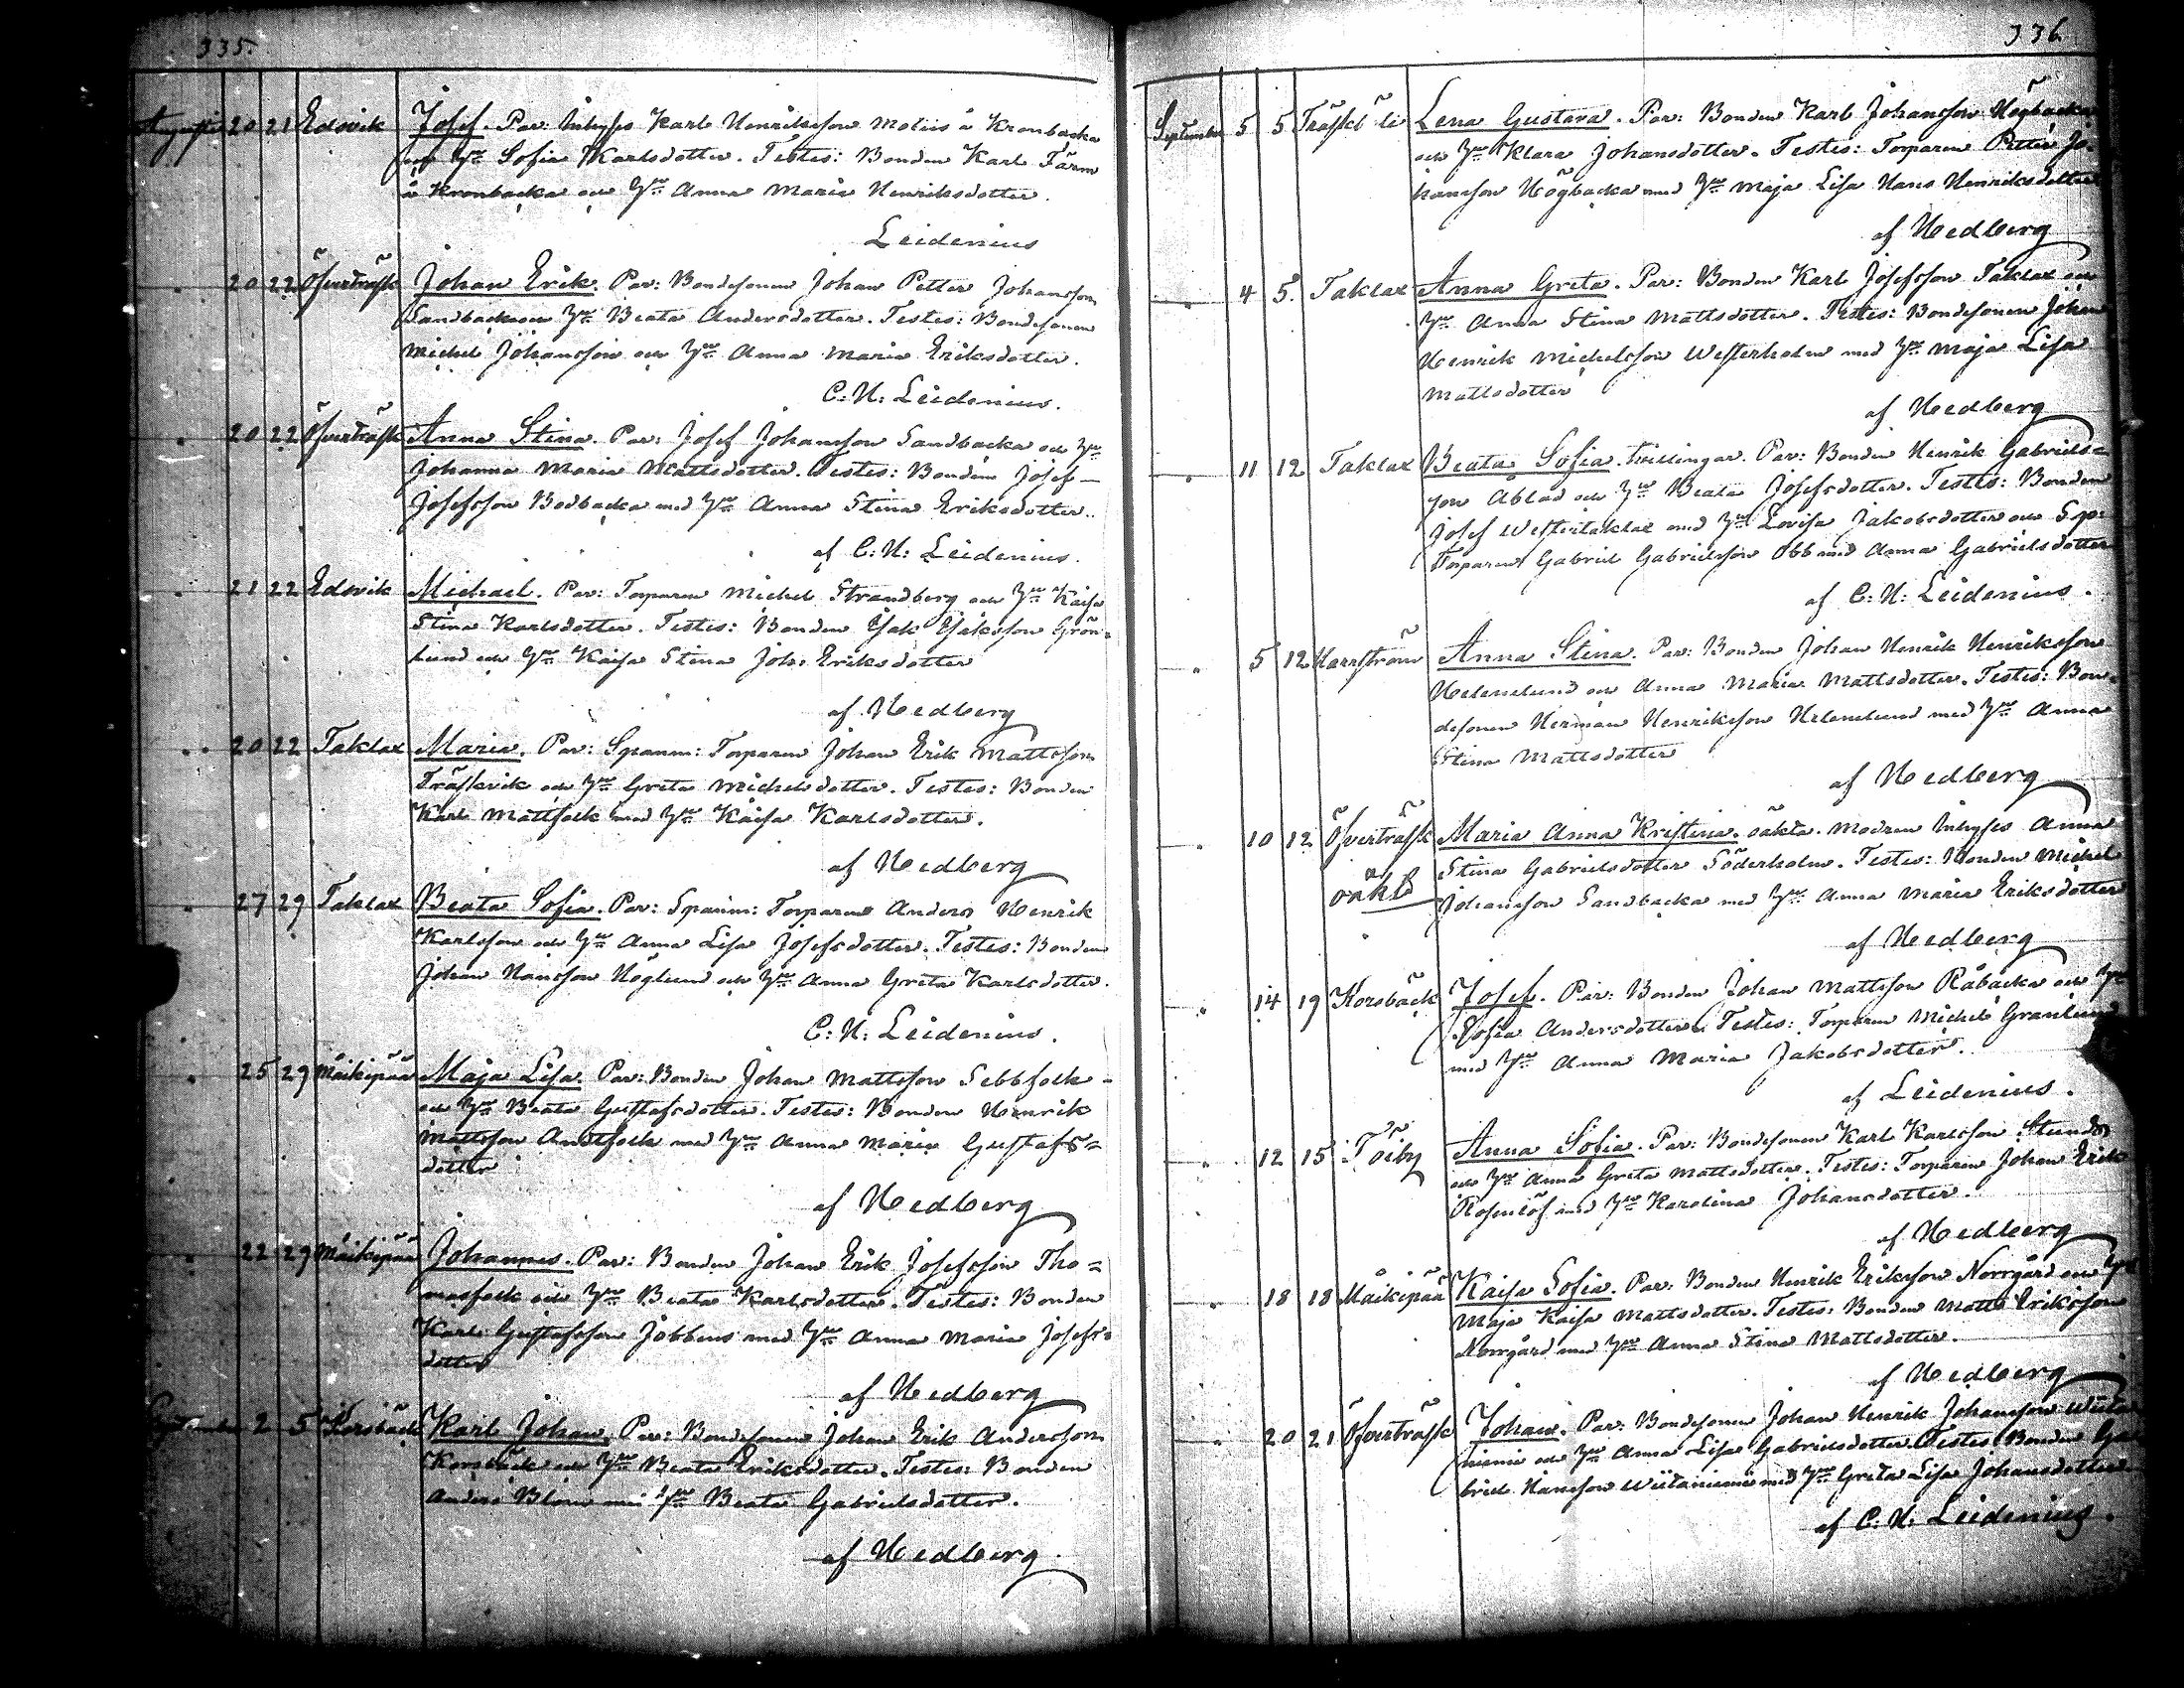 335.
Augusti 20 21 Edsvik Josef. Par: Inhyses Karl Henriksson Motiis å Kronbacka
och Hu Sofia Karlsdotter. Testes: Bonden Karl Färm
å Kronbacka och Hu Anna Maria Henriksdotter.
Leidenius
" 20 22 Öfverträsk Johan Erik. Par: Bondesonen Johan Petter Johansson
Sandbacka och Hu Beata Andersdotter. Testes: Bondesonen
Michel Johansson och Hu Anna Maria Eriksdotter.
C: N: Leidenius.
" 20 22 Öfverträsk Anna Stina. Par: Josef Johansson Sandbacka och Hu
Johanna Maria Mattsdotter. Testes: Bonden Josef
Josefsson Bodbacka med Hu Anna Stina Eriksdotter.
af C: N: Leidenius.
" 21 22 Edsvik Michael. Par: Torparen Michel Strandberg och Hu Kaisa
Stina Karlsdotter. Testes: Bonden Isak Isaksson Grön-
lund och Hu Kaisa Stina Joh: Eriksdotter
af Hedberg
" 20 22 Taklax Maria. Par: Spannm: Torparen Johan Erik Mattsson
Träskvik och Hu Greta Michelsdotter. Testes: Bonden
Karl Mattfolk med Hu Kaisa Karlsdotter.
af Hedberg
" 27 29 Taklax Beata Sofia. Par: Spannm: Torparen Anders Henrik
Karlsson och Hu Anna Lisa Josefsdotter. Testes: Bonden
Johan Hansson Höglund och Hu Anna Greta Karlsdotter.
C: N: Leidenius.
" 25 29 Måikipää Maja Lisa. Par: Bonden Johan Mattsson Sebbfolk
och Hu Beata Gustafsdotter. Testes: Bonden Henrik
Mattsson Andtfolk med Hu Anna Maria Gustafs=
dotter
af Hedberg
" 22 29 Måikipää Johannes. Par: Bonden Johan Erik Josefsson Tho=
masfolk och Hu Beata Karlsdotter. Testes: Bonden
Karl Gustafsson Jobbens med Hu Anna Maria Josefs=
dotter
af Hedberg
September 2 5 Korsbäck Karl Johan. Par: Bondesonen Johan Erik Andersson
Korsbäck och Hu Beata Eriksdotter. Testes: Bonden
Anders Blom med Hu Beata Gabrielsdotter.
af Hedberg
336
September 5 5 Träskböle Lena Gustava. Par: Bonden Karl Johansson Högbacka
och Hu Klara Johansdotter. Testes: Torparen Petter Jo-
hansson Högbacka med Hu Maja Lisa Hans Henriksdotter
af Hedberg
" 4 5. Taklax Anna Greta. Par: Bonden Karl Josefsson Taklax och
Hu Anna Stina Mattsdotter. Testes: Bondesonen Johan
Henrik Michelsson Westerholm med Hu Maja Lisa
Mattsdotter
af Hedberg
" 11 12 Taklax Beata Sofia. tvillingar. Par: Bonden Henrik Gabriels=
son Åblad och Hu Beata Josefsdotter. Testes: Bonden
Josef Westertaklax med Hu Lovisa Jakobsdotter och Sp:
Torparen Gabriel Gabrielsson Obb med Anna Gabrielsdotter
af C: N: Leidenius.
" 5 12 Harrström Anna Stina. Par: Bonden Johan Henrik Henriksson
Helenelund och Anna Maria Mattsdotter. Testes: Bon-
desonen Herman Henriksson Helenelund med Hu Anna
Stina Mattsdotter
af Hedberg
" 10 12 Öfverträsk Maria Anna Kristina. oäkta. Modren Inhyses Anna
Stina Gabrielsdotter Söderholm. Testes: Bonden Michel
oäkta Johansson Sandbacka med Hu Anna Maria Eriksdotter
af Hedberg
" 14 19 Korsbäck Josef. Par: Bonden Johan Mattsson Råbacka och Hu
Sofia Andersdotter. Testes: Torparen Michel Granlund
med Hu Anna Maria Jakobsdotter.
af Leidenius.
" 12 15 Töiby Anna Sofia. Par: Bondesonen Karl Karlsson Stunds
och Hu Anna Greta Mattsdotter. Testes: Torparen Johan Erik
Rosenlöf med Hu Karolina Johansdotter.
af Hedberg
" 18 18 Måikipää Kaisa Sofia. Par: Bonden Henrik Eriksson Norrgård och Hu
Maja Kaisa Mattsdotter. Testes: Bonden Matts Eriksson
Norrgård med Hu Anna Stina Mattsdotter.
af Hedberg
" 20 21 Öfverträsk Johan. Par: Bondesonen Johan Henrik Johansson Wiita
niemi och Hu Anna Lisa Gabrielsdotter. Testes: Bonden Ga
briel Hansson Wiitaniemi med Hu Greta Lisa Johansdotter
af C: N: Leidenius.